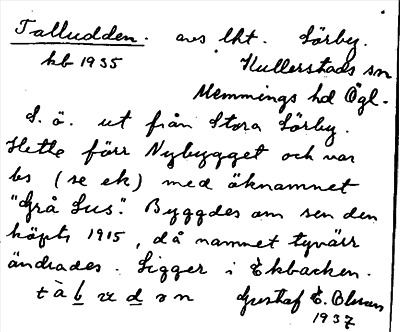 Talludden. avs lht. Sörby.
kb 1935 Hullerstads sn
Memmings hd Ögl.
S. ö. ut från Stora Sörby.
Hette förr Nybygget och var
bs (se ek) med öknamnet
"Grå Lus". Byggdes om sen den
köpts 1915, då namnet tyvärr
ändrades. Ligger i Ekbacken.
Gustaf E.
1937